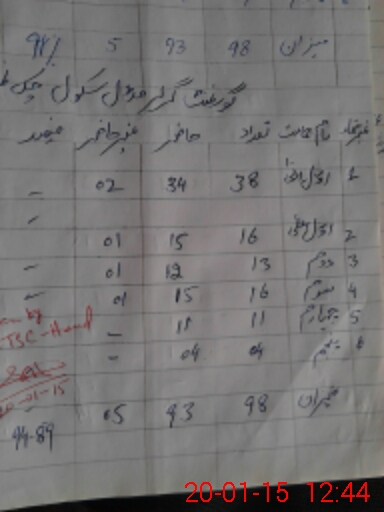 میزان 98 93 5 94%
گورنمنٹ گرلز مڈل سکول چک
نمبرشمار نام جماعت تعداد حاضر غیرحاضر فیصد
1 اول ادنیٰ 38 34 02 -
2 اول اعلیٰ 16 15 01 -
3 دوم 13 12 01 -
4 سوم 16 15 01 -
5 چہارم 11 11 -
6 پنجم 04 04 -
by
TSC-Head
20-01-15
میزان 98 93 05
94.89
20-01-15 12:44